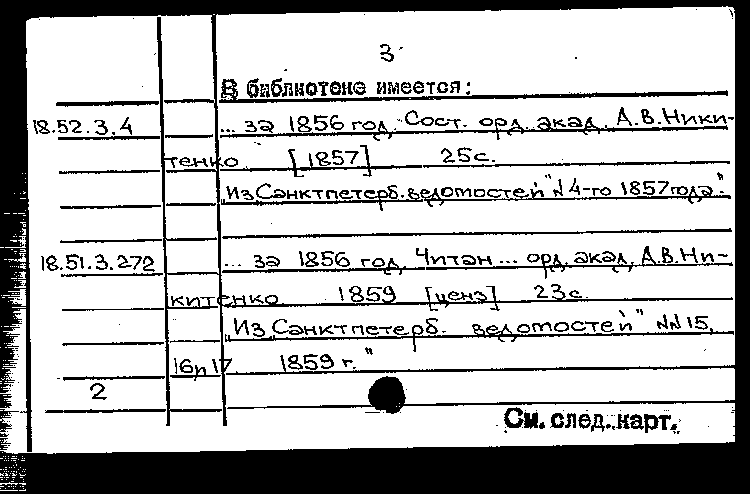 3
В библиотеке имеется:
18.52.3.4 ... за 1856 год. Сост. орд. акад. А.В.Ники-
тенко [1857] 25с.
"Из Санктпетерб. ведомостей" N 4-го 1857 года."
18.51.3.272 ... за 1856 год, Читан ... орд. акад. А.В.Ни-
китенко 1859 [ценз] 23с.
"Из Санктпетерб. ведомостей" NN 15,
16 и 17 1859 г."
2
См. след. карт.